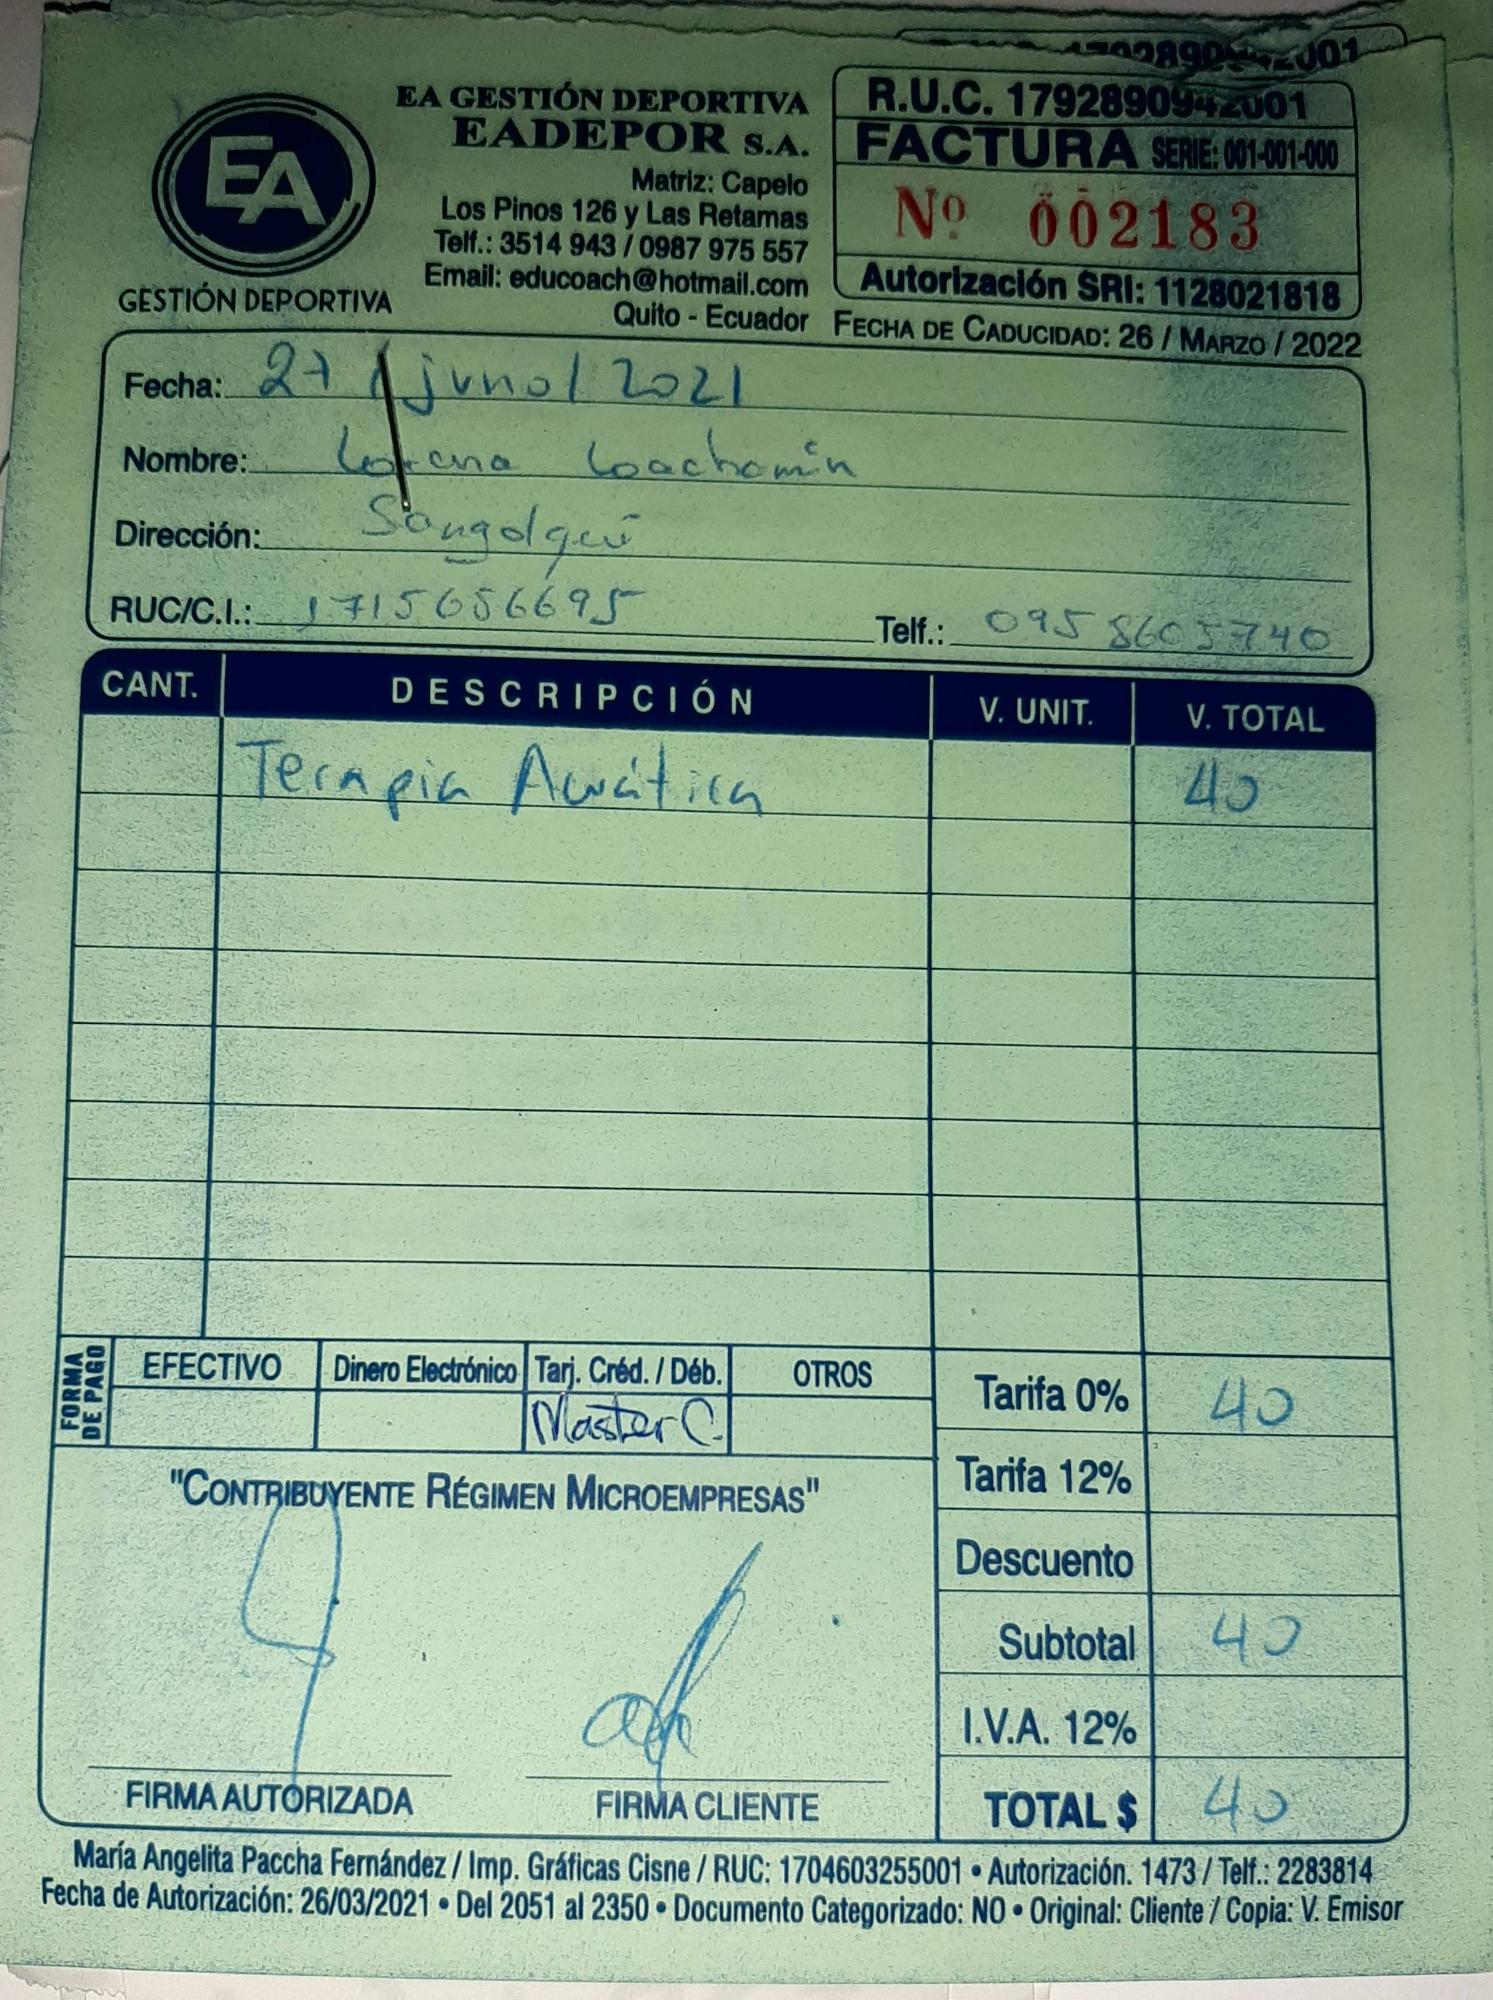 EA GESTIÓN DEPORTIVA
EADEPOR S.A.
Matriz: Capelo
Los Pinos 126 y Las Retamas
Telf.: 3514 943 / 0987 975 557
Email: educoach@hotmail.com
Quito - Ecuador
EA
GESTIÓN DEPORTIVA
R.U.C. 1792890942001
FACTURA SERIE: 001-001-000
Nº 002183
Autorización SRI: 1128021818
FECHA DE CADUCIDAD: 26 / MARZO / 2022
Fecha: 27 / junio / 2021
Nombre: Lorena Loachamin
Dirección: Sangolquí
RUC/C.I.: 1715656695 Telf.: 0958605740
CANT. DESCRIPCIÓN V. UNIT. V. TOTAL
Terapia Acuática 40
FORMA DE PAGO
EFECTIVO Dinero Electrónico Tarj. Créd. / Déb. OTROS
Master C.
Tarifa 0% 40
Tarifa 12%
Descuento
Subtotal 40
I.V.A. 12%
TOTAL $ 40
"CONTRIBUYENTE RÉGIMEN MICROEMPRESAS"
FIRMA AUTORIZADA FIRMA CLIENTE
María Angelita Paccha Fernández / Imp. Gráficas Cisne / RUC: 1704603255001 • Autorización. 1473 / Telf.: 2283814
Fecha de Autorización: 26/03/2021 • Del 2051 al 2350 • Documento Categorizado: NO • Original: Cliente / Copia: V. Emisor